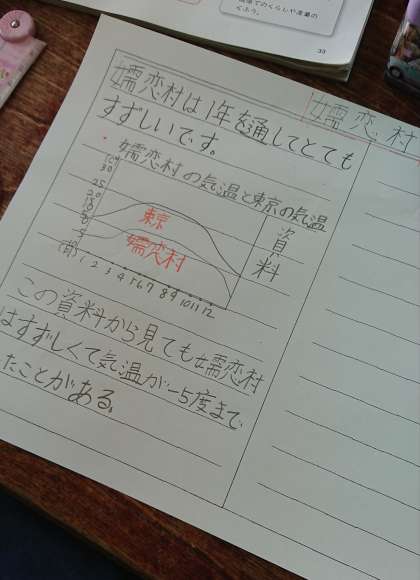 嬬恋村は1年を通してとても
すずしいです。
嬬恋村の気温と東京の気温
(℃)
30
25
20
東京
嬬恋村
(月) 1 2 3 4 5 6 7 8 9 10 11 12
資料
この資料から見ても嬬恋村
はすずしくて気温が-5度まで
たことがある。
嬬恋村
33